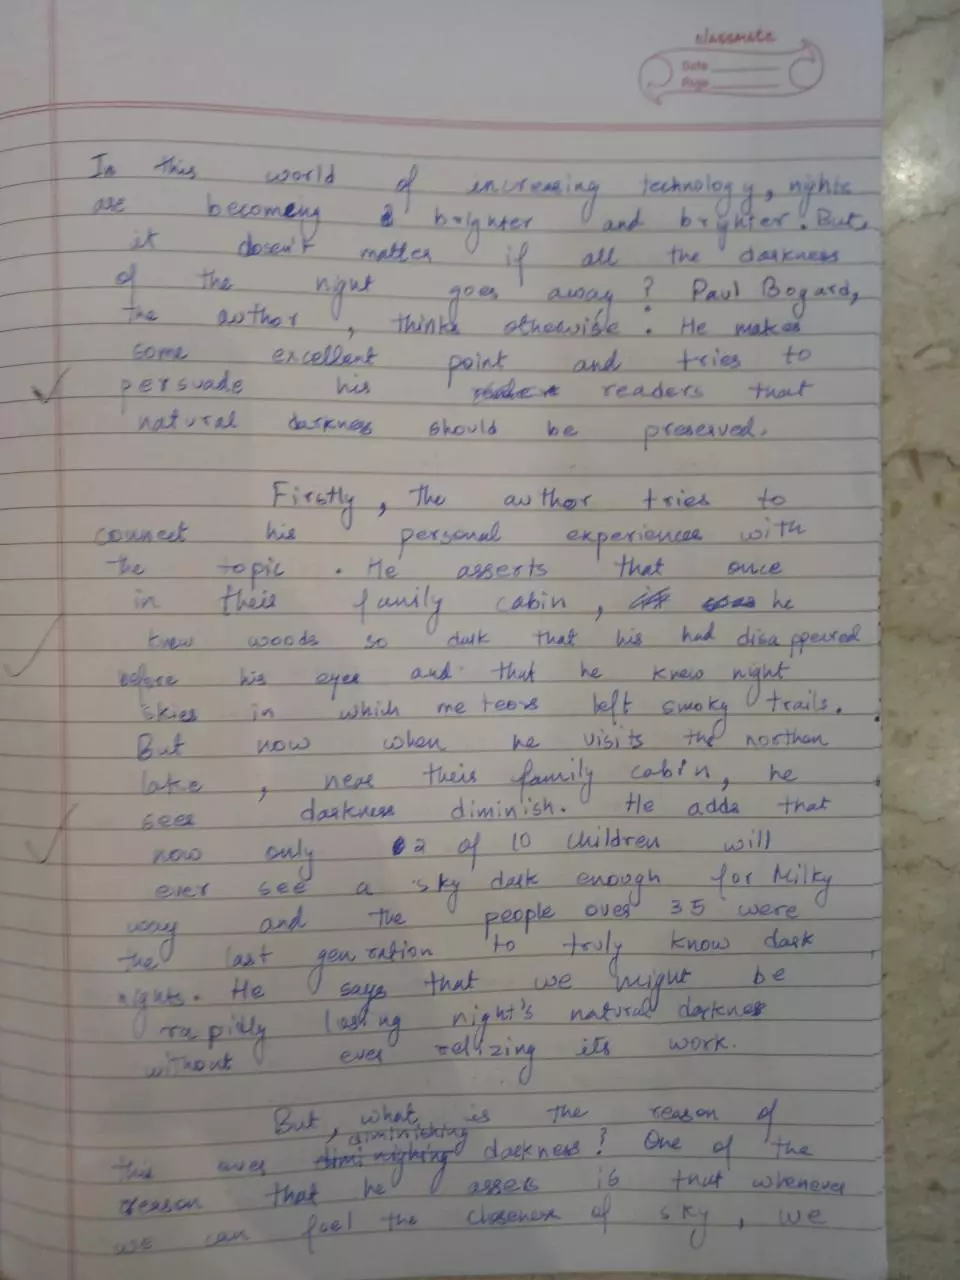 classmate
Date
Page
In this world of increasing technology, nights
are becomeng brighter and brighter. But,
it doesn't matter if all the darkness
of the night goes away? Paul Bogard,
the author, thinks otherwise. He makes
some excellent point and tries to
persuade his readers that
natural darkness should be preserved.
Firstly, the author tries to
connect his personal experiences with
the topic. He asserts that once
in their family cabin, he
knew woods so dark that his had disappeared
before his eyes and that he knew night
skies in which meteors left smoky trails.
But now when he visits the northen
lake, near their family cabin, he
sees darkness diminish. He adds that
now only 2 of 10 children will
ever see a sky dark enough for Milky
way and the people over 35 were
the last genration to truly know dark
nights. He says that we might be
rapidly losing night's natural darkness
without ever relizing its work.
But, what is the reason of
this ever diminishing darkness? One of the
reason that he assers is that whenever
we can feel the closeness of sky, we